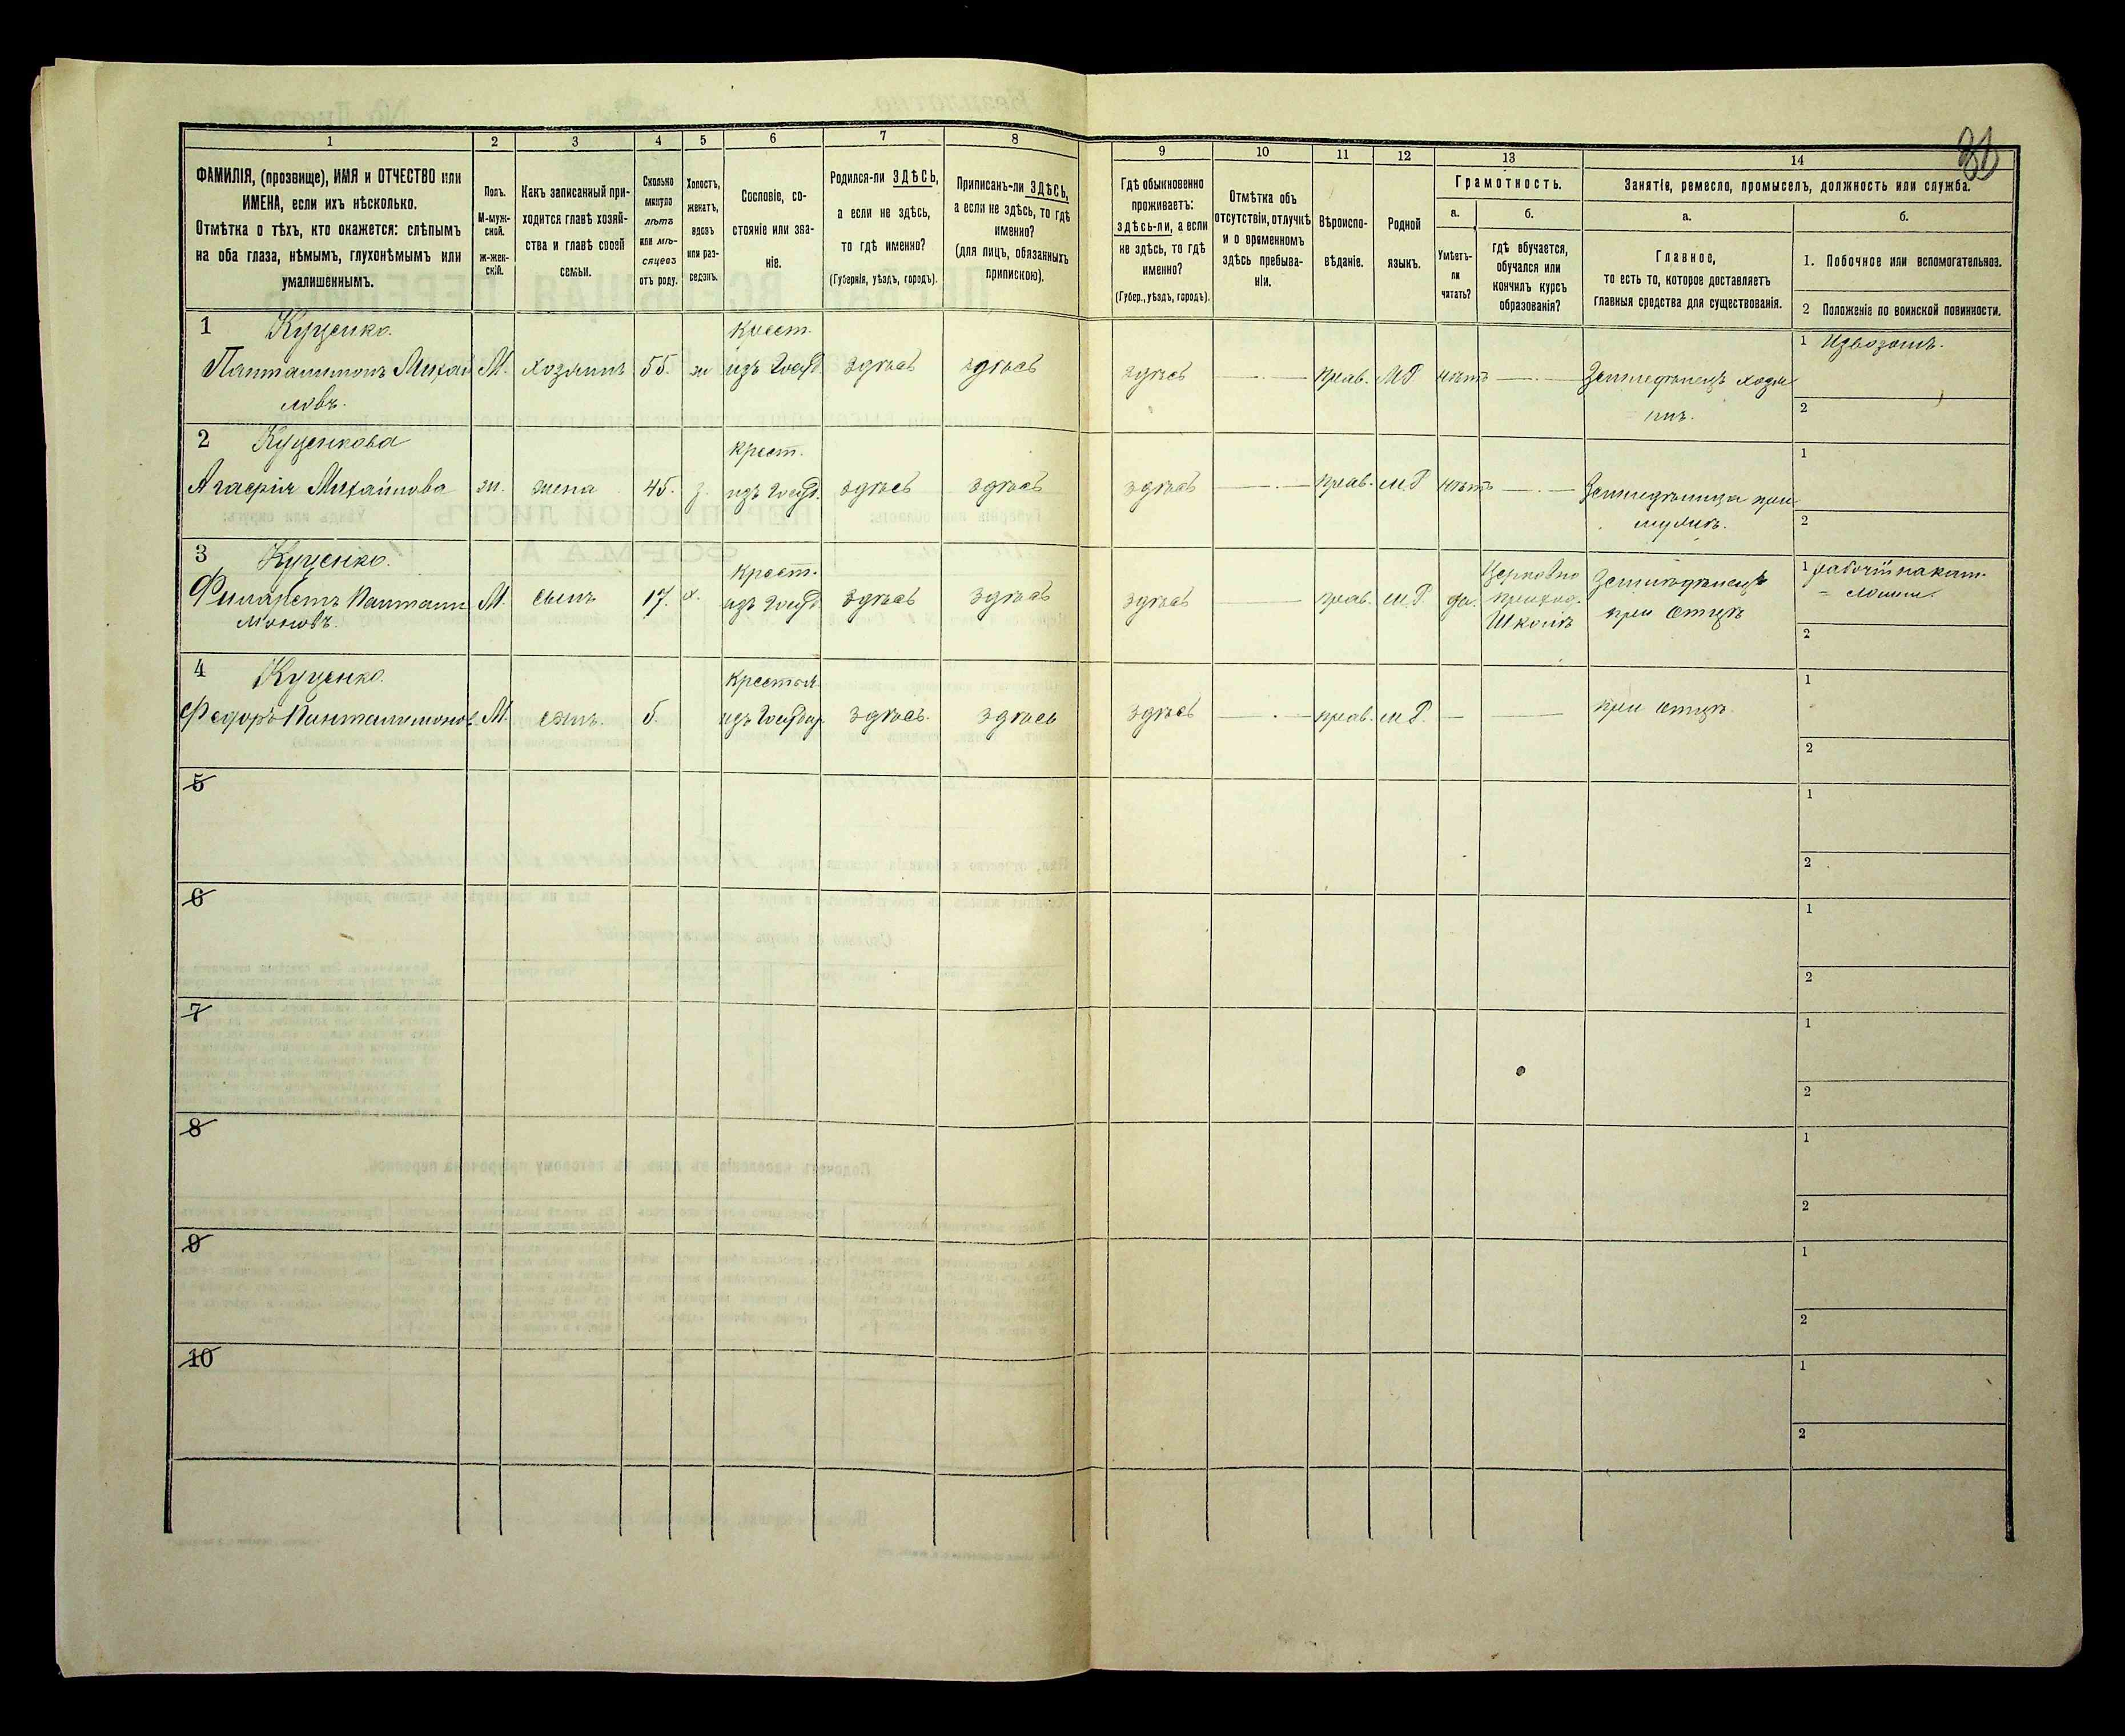 36
1 2 3 4 5 6 7 8 9 10 11 12 13 14
ФАМИЛІЯ, (прозвище), ИМЯ и ОТЧЕСТВО или
ИМЕНА, если ихъ нѣсколько.
Отмѣтка о тѣхъ, кто окажется: слѣпымъ
на оба глаза, нѣмымъ, глухонѣмымъ или
умалишеннымъ.
Полъ.
М-муж-
ской.
ж-жен-
скій.
Какъ записанный при-
ходится главѣ хозяй-
ства и главѣ своей
семьи.
Сколько
минуло
лѣтъ
или мѣ-
сяцевъ
отъ роду.
Холостъ,
женатъ,
вдовъ
или раз-
веденъ.
Сословіе, со-
стояніе или зва-
ніе.
Родился-ли ЗДѢСЬ,
а если не здѣсь,
то гдѣ именно?
(Губернія, уѣздъ, городъ).
Приписанъ-ли ЗДѢСЬ,
а если не здѣсь, то гдѣ
именно?
(для лицъ, обязанныхъ
припискою).
Гдѣ обыкновенно
проживаетъ:
здѣсь-ли, а если
не здѣсь, то гдѣ
именно?
(Губер., уѣздъ, городъ).
Отмѣтка объ
отсутствіи, отлучкѣ
и о временномъ
здѣсь пребыва-
ніи.
Вѣроиспо-
вѣданіе.
Родной
языкъ.
Грамотность.
а.
Умѣетъ-
ли
читать?
б.
гдѣ обучается,
обучался или
кончилъ курсъ
образованія?
Занятіе, ремесло, промыселъ, должность или служба.
а.
Главное,
то есть то, которое доставляетъ
главныя средства для существованія.
б.
1. Побочное или вспомогательное.
2 Положеніе по воинской повинности.
1 Куценко. Крест. 1 Извозомъ.
Панталимонъ Михай М. хозяинъ 55. ж изъ Госуд. здѣсь здѣсь здѣсь — . — прав. М Р нѣтъ — . — Земледѣлецъ хозя
ловъ. инъ. 2
2 Куценкова Крест. 1
Агафія Михайлова ж. жена 45. з. изъ Госуд. здѣсь здѣсь здѣсь — . — прав. М.Р нѣтъ — . — Земледѣлица при
мужѣ. 2
3 Куценко. Крест. Церковно Земледѣлецъ 1 рабочій на кам-
Филаретъ Пантали М. сынъ 17. х. изъ Госуд. здѣсь здѣсь здѣсь — прав. М.Р. да. приход. при отцѣ
моновъ. Школѣ 2
4 Куценко. Крестья. 1
Федоръ Панталимонов М. сынъ. 5. изъ Государ. здѣсь. здѣсь здѣсь — . — прав. М Р. — — при отцѣ.
2
5 1
2
6 1
2
7 1
2
8 1
2
9 1
2
10 1
2